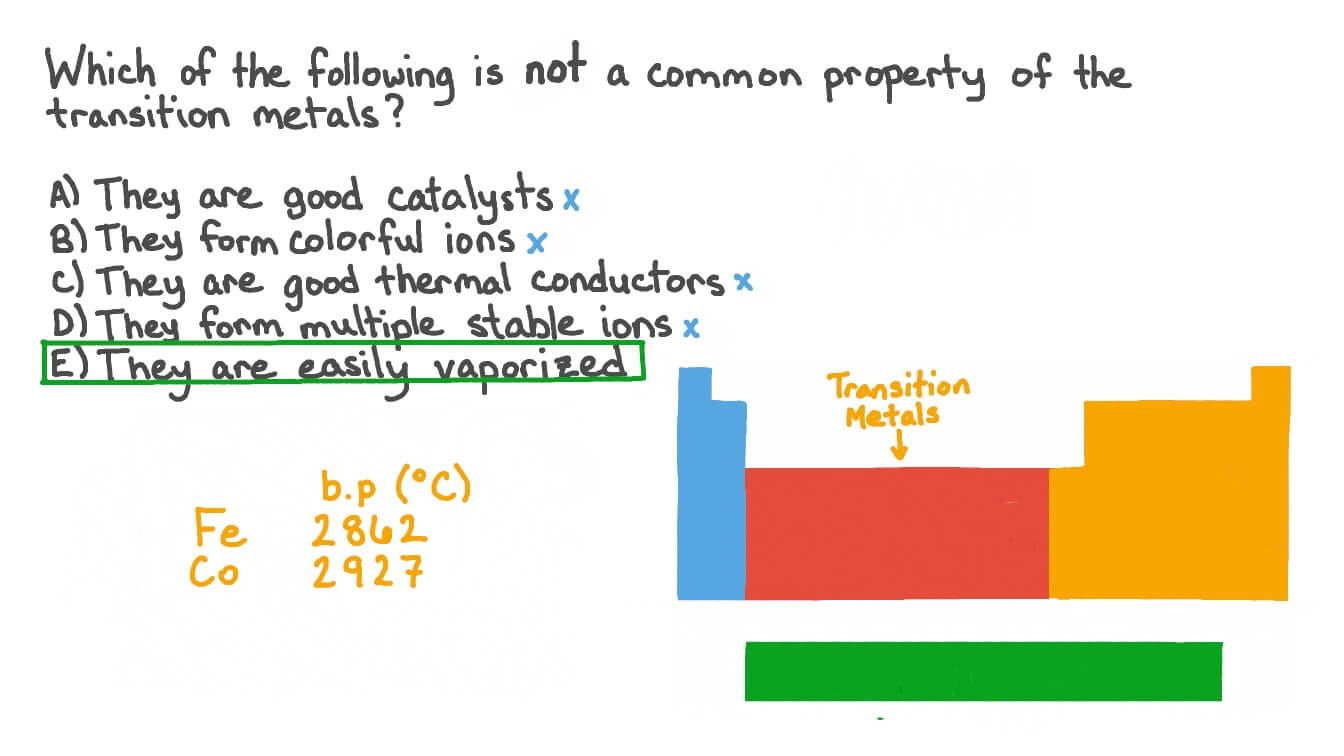 Which of the following is not a common property of the
transition metals?
A) They are good catalysts x
B) They form colorful ions x
C) They are good thermal conductors x
D) They form multiple stable ions x
E) They are easily vaporized
Transition
Metals
b.p (°C)
Fe 2862
Co 2927